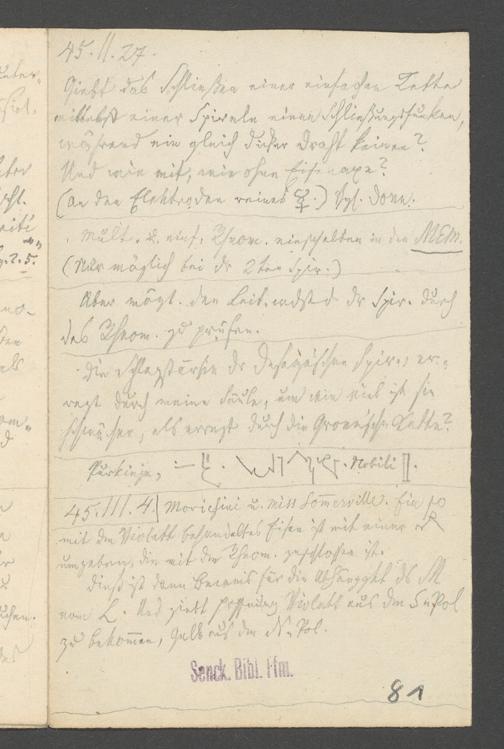 45. II. 27.
Giebt das Schließen einer einfachen Kette
mittelst einer Spirale einen Schließungsfunken,
während ein gleich dicker Draht keinen?
Und wie mit, wie ohne Eisenaxe?
(An den Elektroden reines ☿.) Vgl. Dove.
Mult. u. einf. Rheom. einschalten in den MEM.
(Nur möglich bei der 2ten Spir.)
Aber mögl. den Leit. der Spir. durch
das Rheom. zu prüfen.
Die Schlagstärke der Spir., er-
regt durch meine Säule, um wie viel ist sie
schwächer, als erregt durch die Grovesche Kette?
Purkinje, Nobili
45. III. 4. Morichini u. Miss Somerville. Ein
mit dem Violett behandeltes Eisen ist mit einer
umgeben, die mit dem Rheom. geschlossen ist.
Dieß ist dann Beweis für die des M
vom L. Und giebt Hoffnung Violett aus dem S=Pol
zu bekommen, Gelb aus dem N=Pol.
Senck. Bibl. Ffm.
81